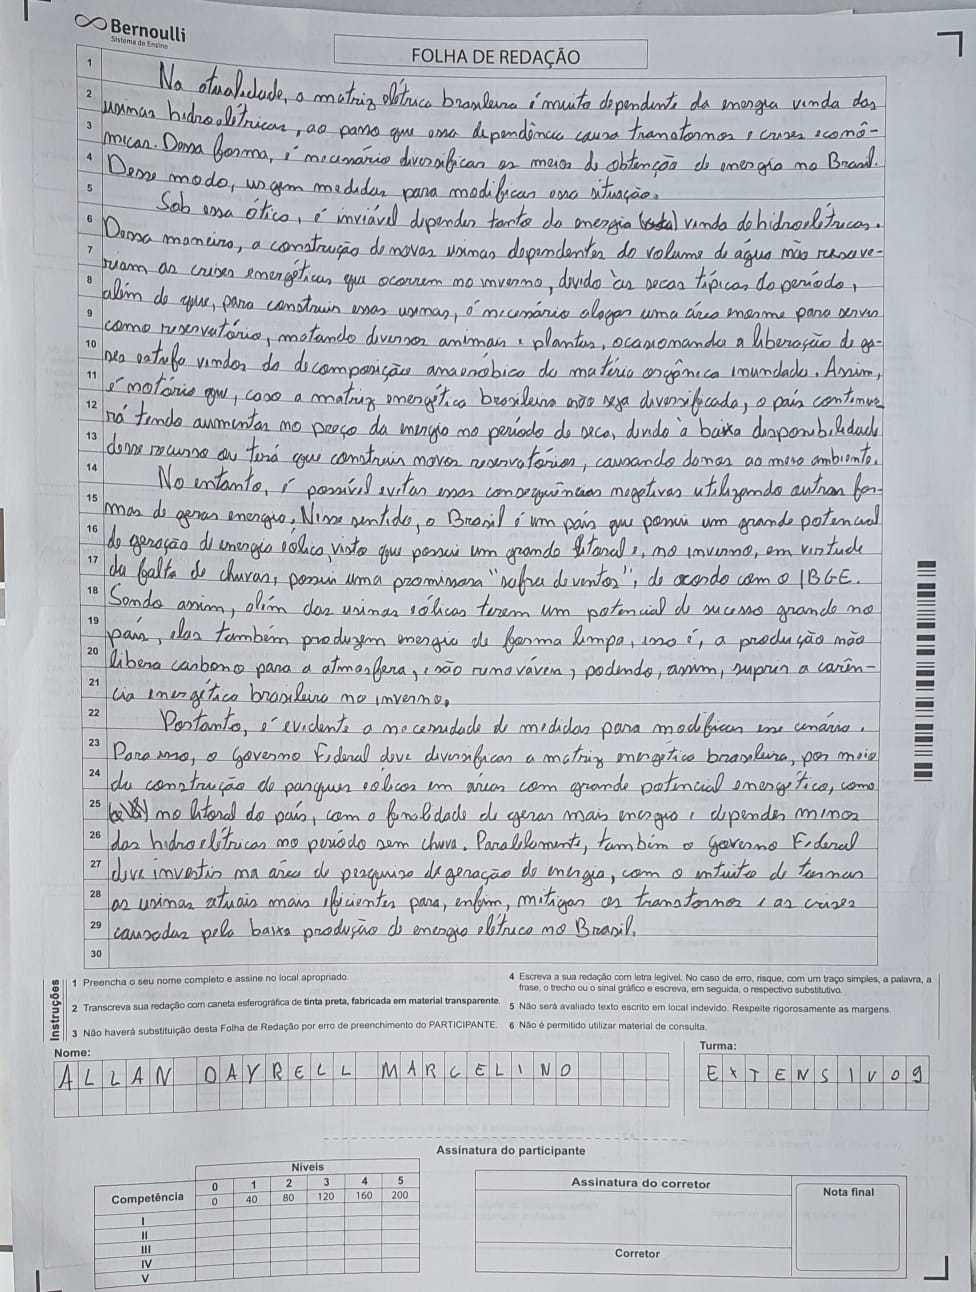 Bernoulli
Sistema de Ensino
FOLHA DE REDAÇÃO
1 Na atualidade, a matriz elétrica brasileira é muito dependente da energia vinda das
2 usinas hidroelétricas, ao passo que essa dependência causa transtornos e crises econô-
3 micas. Dessa forma, é necessário diversificar os meios de obtenção de energia no Brasil.
4 Desse modo, urgem medidas para modificar essa situação.
5 Sob essa ótica, é inviável depender tanto da energia vinda de hidroelétricas.
6 Dessa maneira, a construção de novas usinas dependentes do volume de água não resolve-
7 riam as crises energéticas que ocorrem no inverno, divido às secas típicas do período,
8 além de que, para construir essas usinas, é necessário alagar uma área enorme para servir
9 como reservatório, matando diversos animais e plantas, ocasionando a liberação de ga-
10 ses estufa vindos da decomposição anaeróbica da matéria orgânica inundada. Assim,
11 é notório que, caso a matriz energética brasileira não seja diversificada, o país continua-
12 rá tendo aumentos no preço da energia no período de seca, divido à baixa disponibilidade
13 desse recurso ou terá que construir novos reservatórios, causando danos ao meio ambiente.
14 No entanto, é possível evitar essas consequências negativas utilizando outras for-
15 mas de gerar energia. Nesse sentido, o Brasil é um país que possui um grande potencial
16 de geração de energia eólica, visto que possui um grande litoral e, no inverno, em virtude
17 da falta de chuvas, possui uma promissora "safra de ventos", de acordo com o IBGE.
18 Sendo assim, além das usinas eólicas terem um potencial de sucesso grande no
19 país, elas também produzem energia de forma limpa, isso é, a produção não
20 libera carbono para a atmosfera, e são renováveis, podendo, assim, suprir a carên-
21 cia energética brasileira no inverno.
22 Portanto, é evidente a necessidade de medidas para modificar esse cenário.
23 Para isso, o Governo Federal deve diversificar a matriz energética brasileira, por meio
24 da construção de parques eólicos em áreas com grande potencial energético, como
25 no litoral do país, com a finalidade de gerar mais energia e depender menos
26 das hidroelétricas no período sem chuva. Paralelamente, também o governo Federal
27 deve investir na área de pesquisa de geração de energia, com o intuito de tornar
28 as usinas atuais mais eficientes para, enfim, mitigar os transtornos e as crises
29 causadas pela baixa produção de energia elétrica no Brasil.
30
Instruções
1 Preencha o seu nome completo e assine no local apropriado.
2 Transcreva sua redação com caneta esferográfica de tinta preta, fabricada em material transparente.
3 Não haverá substituição desta Folha de Redação por erro de preenchimento do PARTICIPANTE.
4 Escreva a sua redação com letra legível. No caso de erro, risque, com um traço simples, a palavra, a
frase, o trecho ou o sinal gráfico e escreva, em seguida, o respectivo substitutivo.
5 Não será avaliado texto escrito em local indevido. Respeite rigorosamente as margens.
6 Não é permitido utilizar material de consulta.
Nome:
ALLAN DAYRELL MARCELINO
Turma:
EXTENSIVO 9
Assinatura do participante
Níveis
Competência 0 1 2 3 4 5
0 40 80 120 160 200
I
II
III
IV
V
Assinatura do corretor
Corretor
Nota final